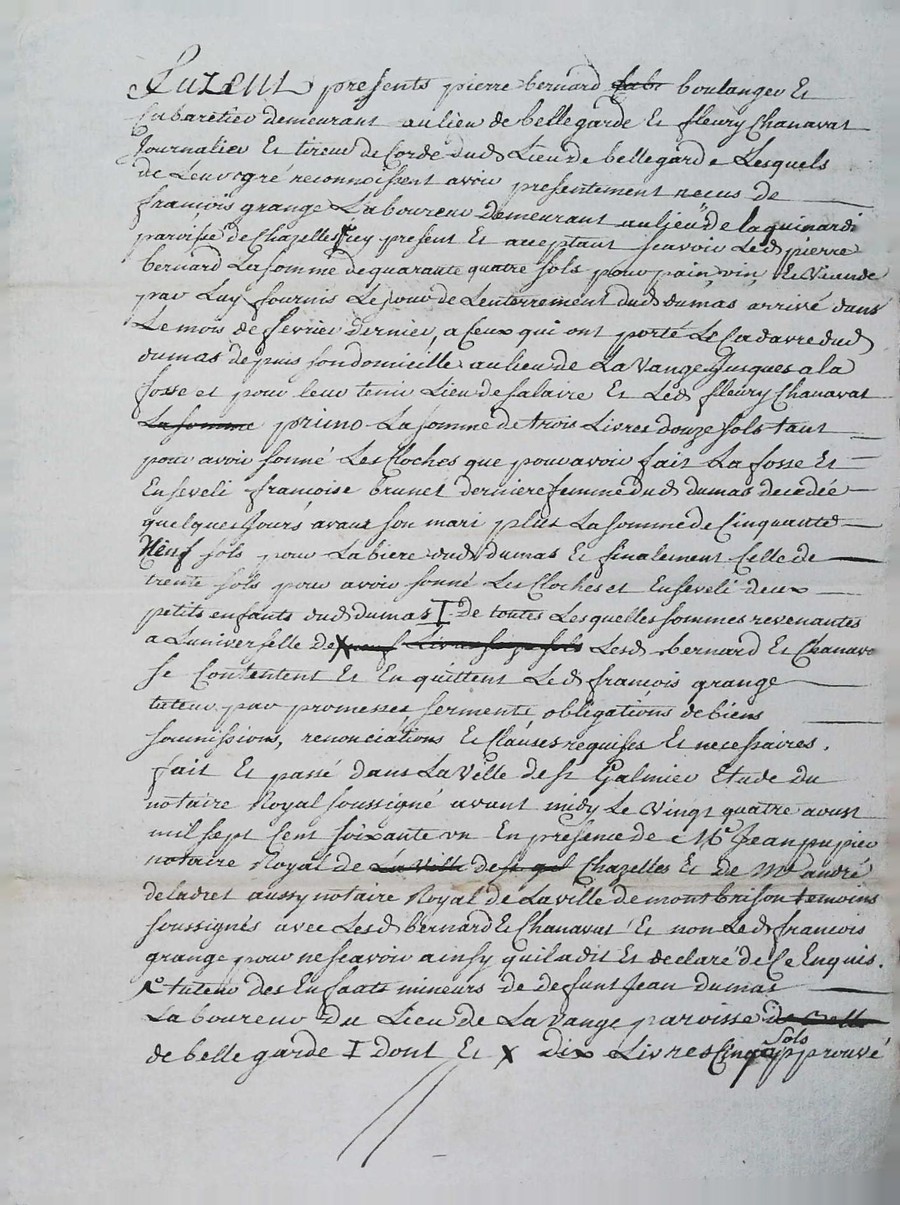 Furent presents pierre bernard cab boulanger Et
Cabaretier demeurant au lieu de bellegarde Et fleury Chanavat
Journalier Et tireur de Corde dud Lieu de bellegarde Lesquels
de Leur gré reconnoissent avoir presentement recus de
françois grange Laboureur Demeurant au lieu de laguinardi
paroisse de Chazelles icy present Et acceptant scavoir Led pierre
bernard La somme de quarante quatre sols pour pain, vin, Et Viande
par Luy fournis Le jour de Lenterrement dud dumas arrivé dans
Le mois de fevrier dernier, a Ceux qui ont porté Le Cadavre dud
dumas depuis son domicille au lieu de La Vange Jusques a la
fosse et pour leur tenir Lieu de salaire Et Led fleury Chanavat
La somme primo La somme de trois Livres douze sols tant
pour avoir sonné Les Cloches que pour avoir fait La fosse Et
Enseveli françoise brunet derniere femme dud dumas decedée
quelques Jours avant son mari plus La somme de Cinquante
Neuf sols pour La biere dud dumas Et finalement Celle de
trente sols pour avoir sonné Les Cloches et Enseveli deux
petits enfants dud dumas I de toutes Lesquelles sommes revenantes
a Luniverselle de X neuf Livres sols Lesd bernard Et Chanava
se Contentent Et En quittent Led françois grange
tuteur par promesses serments, obligations de biens
soumissions, renonciations Et Clauses requises Et necessaires.
fait Et passé dans La Ville de st Galmier Etude du
notaire Royal soussigné avant midy Le Vingt quatre aoust
mil sept Cent soixante un En presence de Me Jean pupier
notaire Royal de La Ville de st gal Chazelles Et De Me andré
deladret aussy notaire Royal de La ville de montbrison temoins
soussignés avec Lesd bernard Et Chanavat Et non Led francois
grange pour ne scavoir ainsy quil a dit Et declaré de Ce Enquis.
tuteur des Enfants mineurs de defunt Jean dumas
Laboureur Du Lieu de La Vange paroisse de belle
de bellegarde I dont Et X dix Livres Cinq sols approuvé